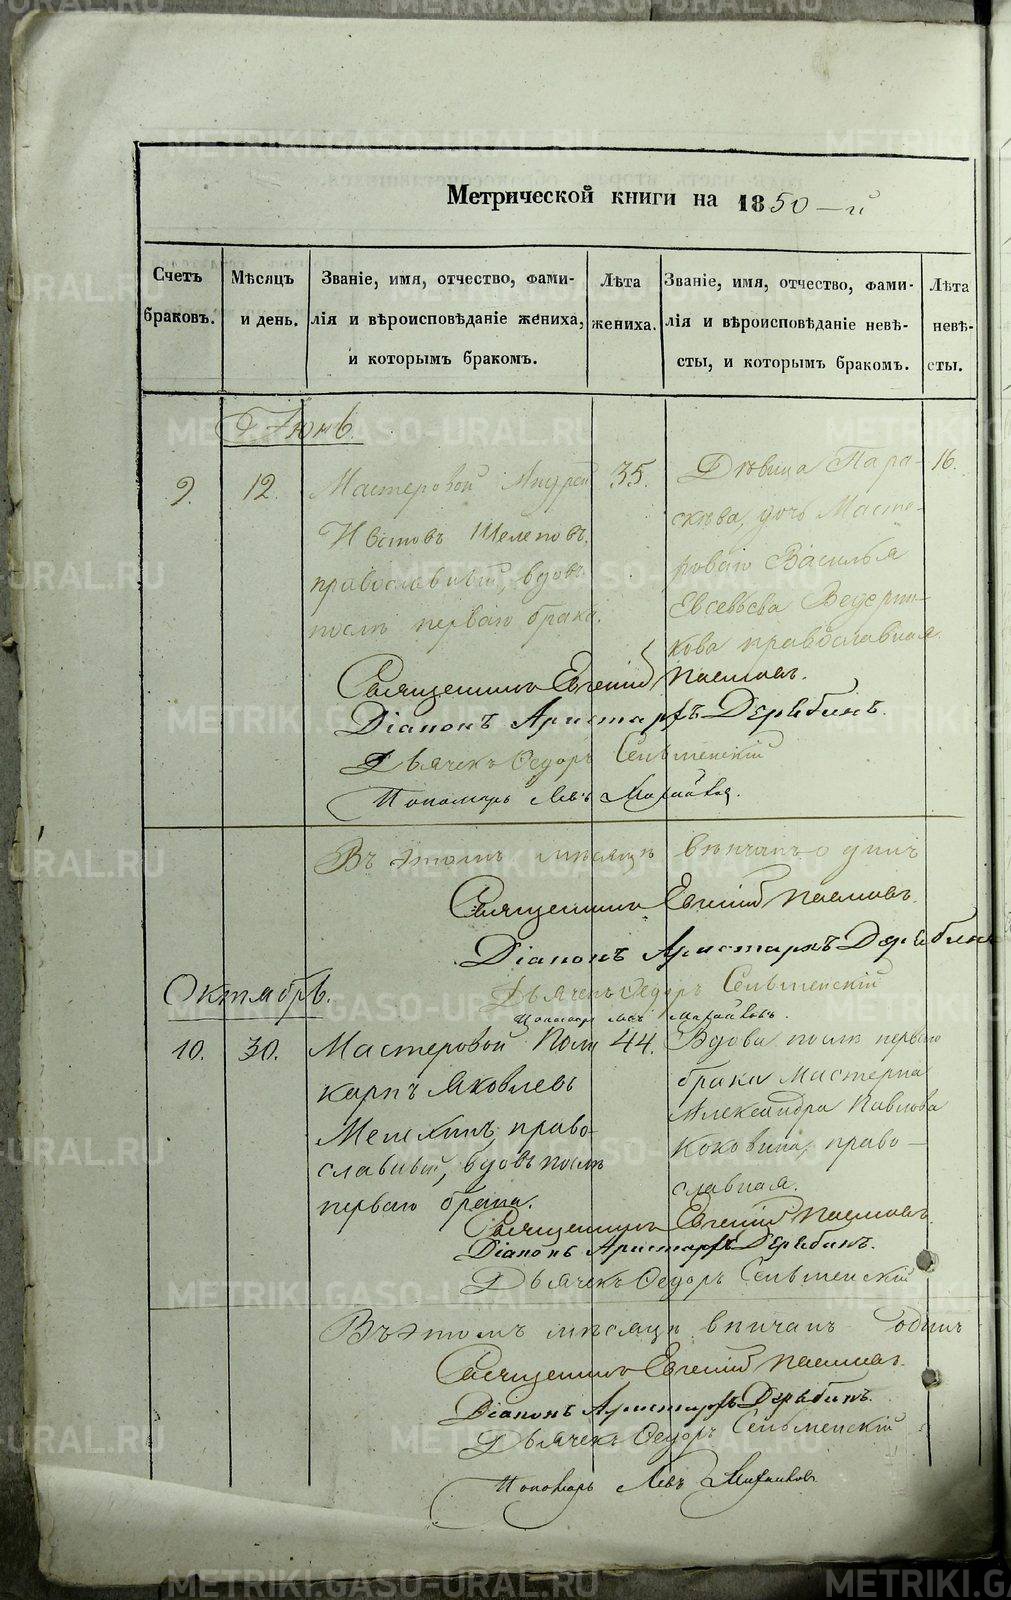 Метрической книги на 1850-й
Счетъ браковъ.
Мѣсяцъ и день.
Званіе, имя, отчество, фамилія и вѣроисповѣданіе жениха, и которымъ бракомъ.
Лѣта жениха.
Званіе, имя, отчество, фамилія и вѣроисповѣданіе невѣсты, и которымъ бракомъ.
Лѣта невѣсты.
Іюнь.
9.
12.
Мастеровой Андрей
Шелеповъ,
православный, вдовъ
послѣ перваго брака.
35.
Дѣвица Пара-
скѣва, дочь Масте-
роваго Василья
Евсевьева Ведерни-
кова православная.
16.
Священникъ Евгеній
Діаконъ Аристархъ Дерябинъ.
Дьячекъ Ѳедоръ Сельменскій
Пономарь Левъ
Въ этомъ мѣсяцѣ вѣнчанъ одинъ
Священникъ Евгеній
Діаконъ Аристархъ Дерябинъ
Дьячекъ Ѳедоръ Сельменскій
Пономарь Левъ
Октябрь.
10.
30.
Мастеровой Поли
карпъ Яковлевъ
право-
славный, вдовъ послѣ
перваго брака.
44.
Вдова послѣ перваго
брака Мастерка
Александра Павлова
Коковина, право-
славная.
Священникъ Евгеній
Діаконъ Аристархъ Дерябинъ.
Дьячекъ Ѳедоръ Сельменскій
Въ этомъ мѣсяцѣ вѣнчанъ одинъ
Священникъ Евгеній
Діаконъ Аристархъ Дерябинъ.
Дьячекъ Ѳедоръ Сельменскій
Пономарь Левъ
METRIKI.GASO-URAL.RU